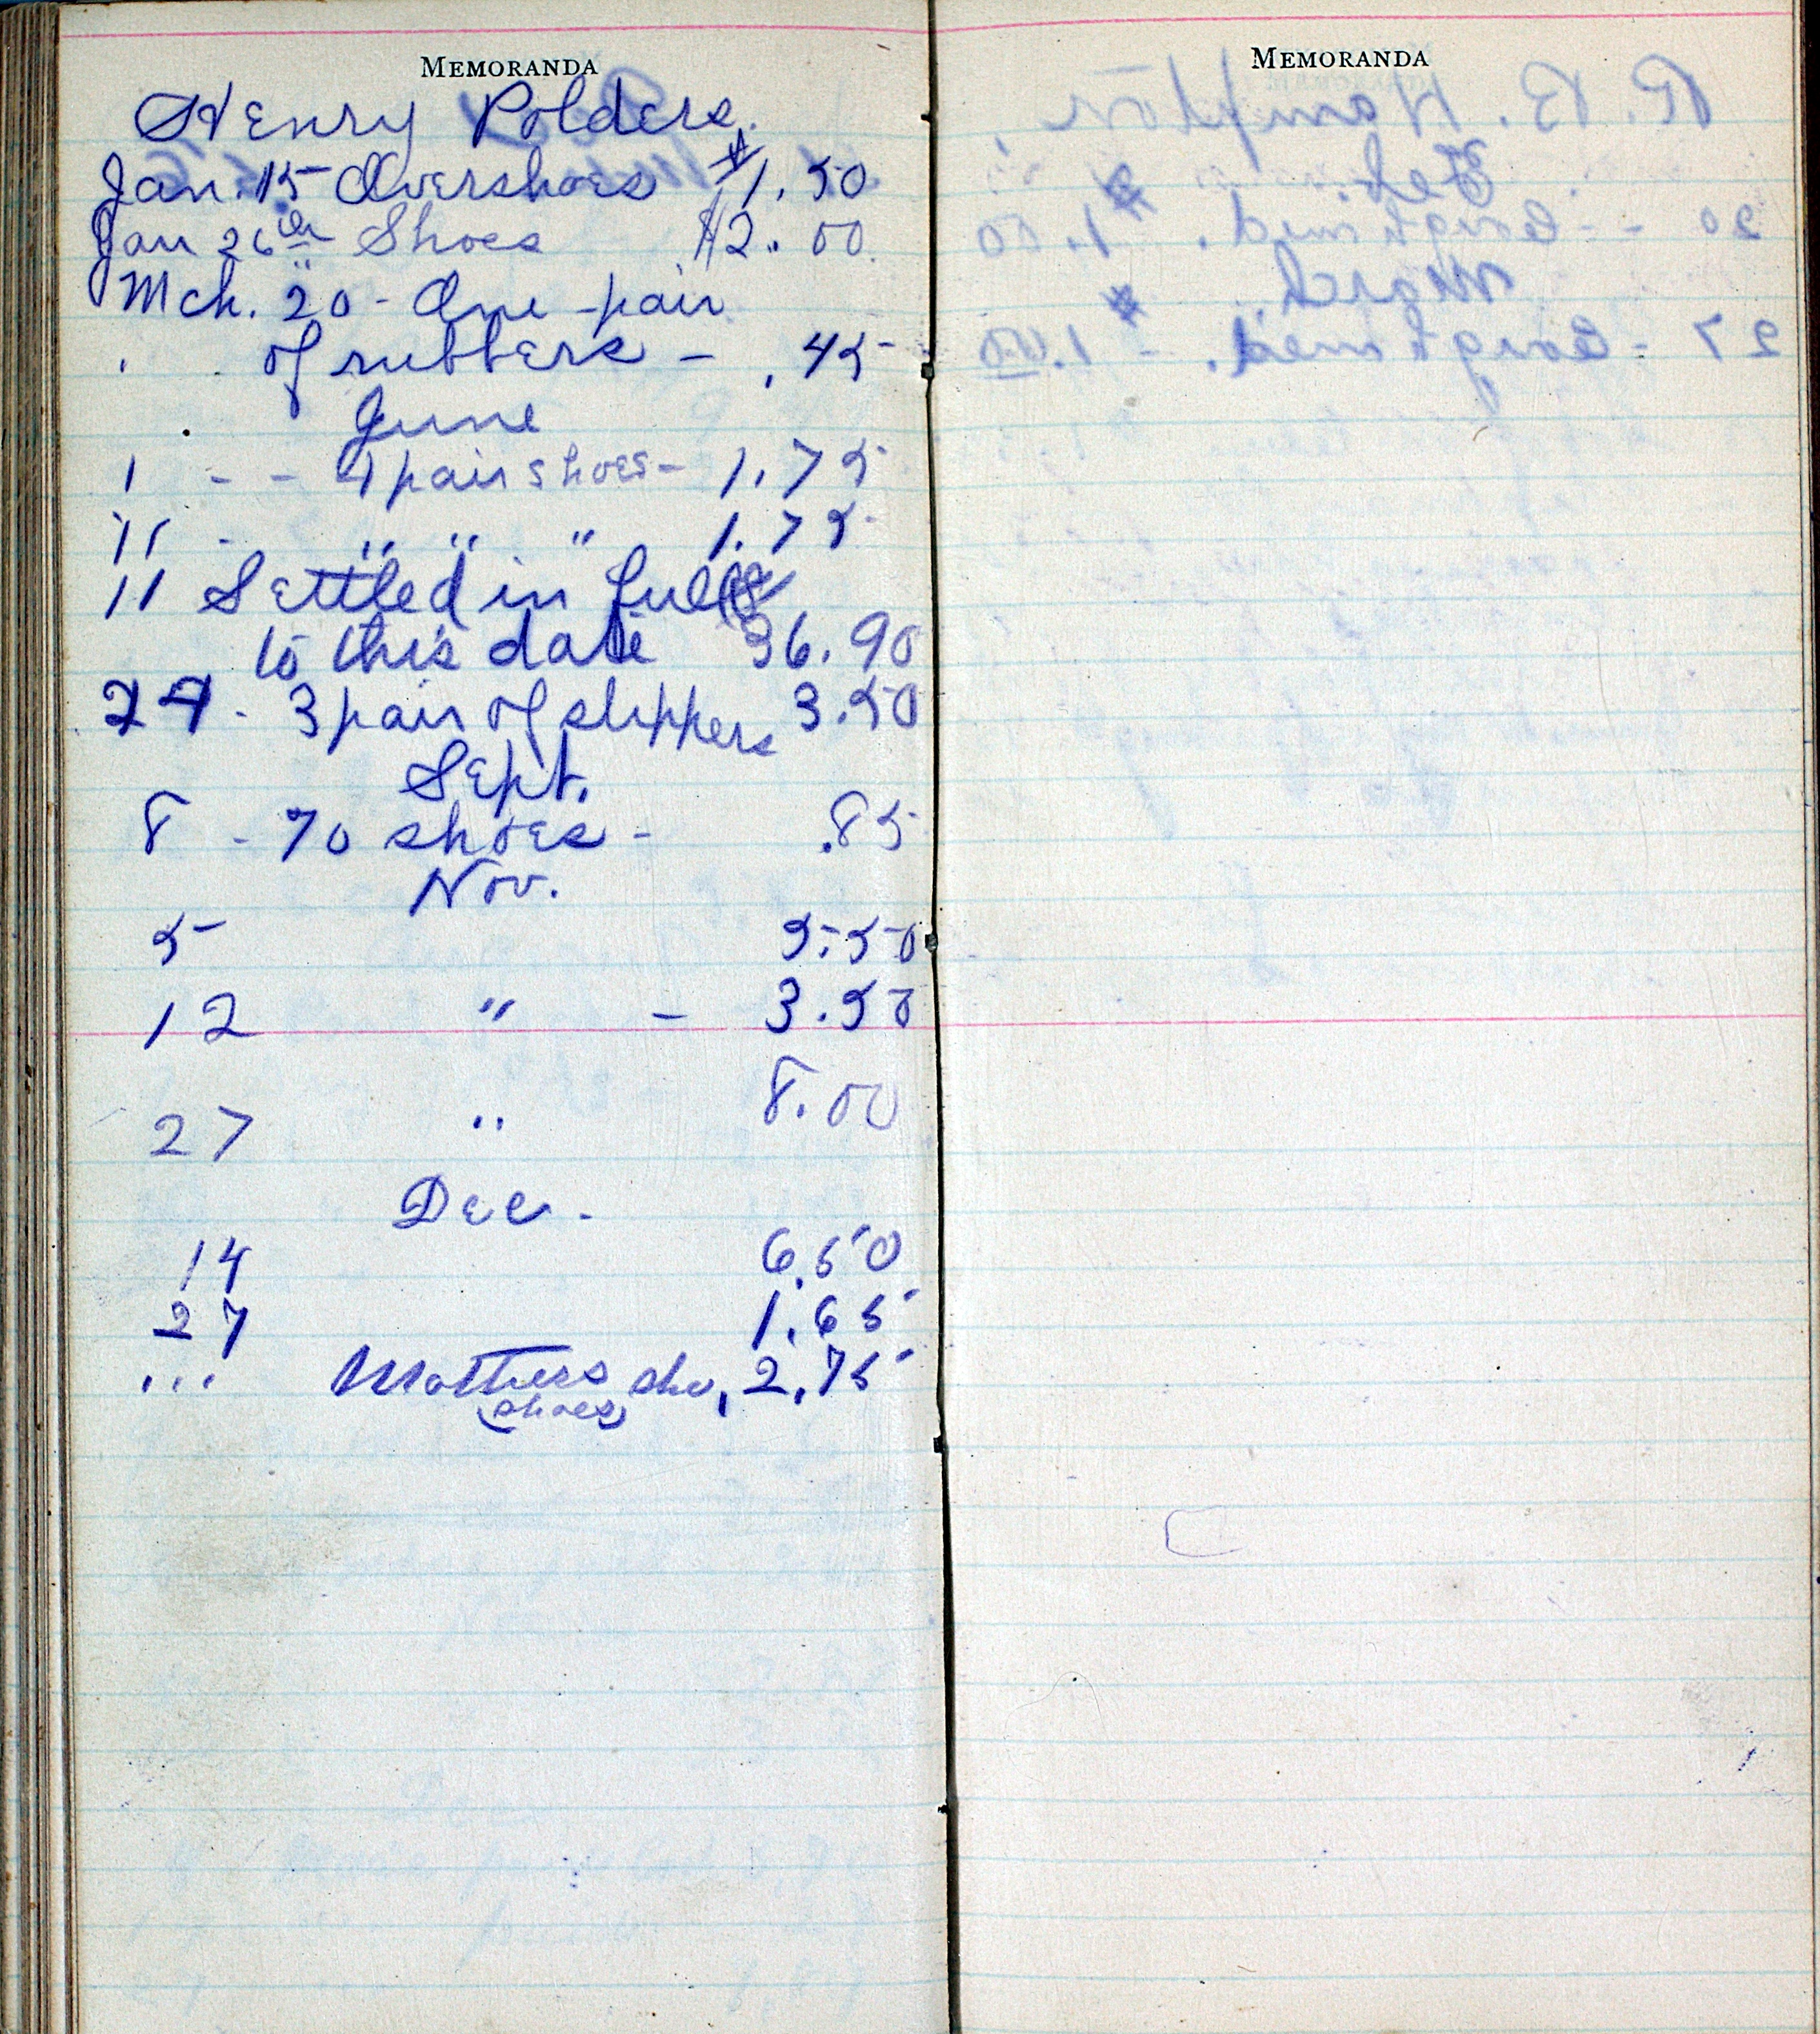 MEMORANDA
Henry Polders.
Jan. 15 Overshoes $1.50
Jan 26th Shoes $2.00
Mch. 20 - One pair
of rubbers - .45
June
1 - - 1 pair shoes - 1.75
11 - " " " 1.75
11 Settled in full
to this date 36.90
24 - 3 pair of slippers 3.50
Sept.
8 - 70 shoes - .85
Nov.
5 5.50
12 " - 3.50
27 " 8.00
Dec.
14 6.50
27 1.65
... Mothers sho, 2.75
(shoes)
MEMORANDA